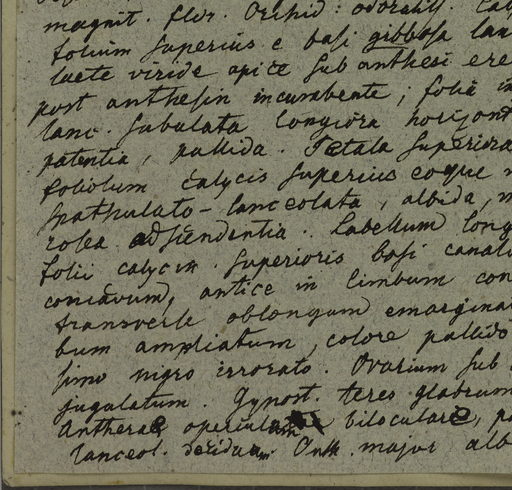 magnit. flor. Orchid: odoratiss. Cal
folium superius e basi gibbosa lan
laete viride apice sub anthesi ere
post anthesin incumbente; folia in
lanc. subulata longiora horizont
patentia, pallida. Petala superiora
foliolum calycis superius eoque
spathulato-lanceolata, albida, m
rosea adscendentia. Labellum long
folii calycin. superioris basi canali
concavum, antice in limbum con
transverse oblongum emargina
bum ampliatum, colore pallido
simo nigro irrorato. Ovarium sub
jugulatum. Gynost. teres glabrum
Antherae operculum biloculare, po
lanceol. decidua. Anth. major alb